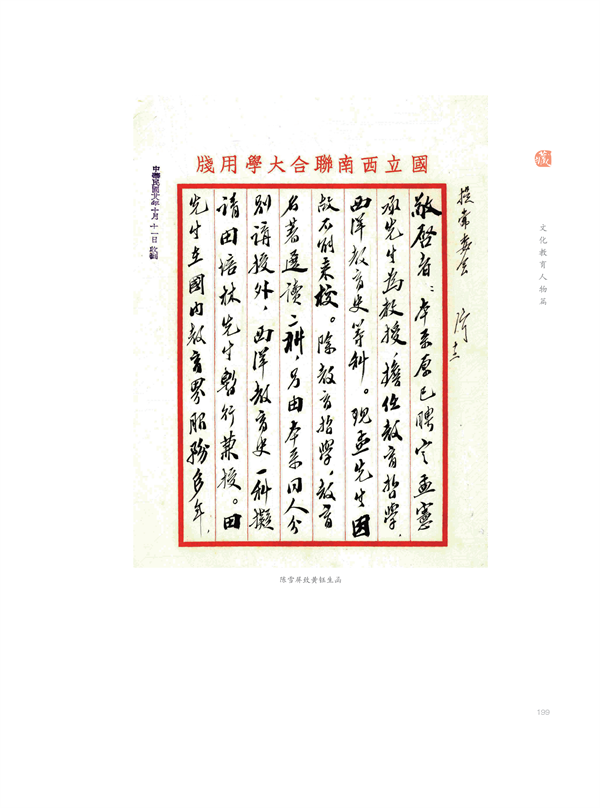 國立西南聯合大學用牋
提常委会
敬啓者：本系原已聘定孟憲
承先生為教授，擔任教育哲學，
西洋教育史等科。現孟先生因
故不能來校。除教育哲學，教育
名著選讀二科，另由本系同人分
別講授外，西洋教育史一科擬
請田培林先生暫行兼授。田
先生在國內教育界服務多年，
中華民國年十月十一日收到
陈雪屏致黄钰生函
藏
文化教育人物篇
199